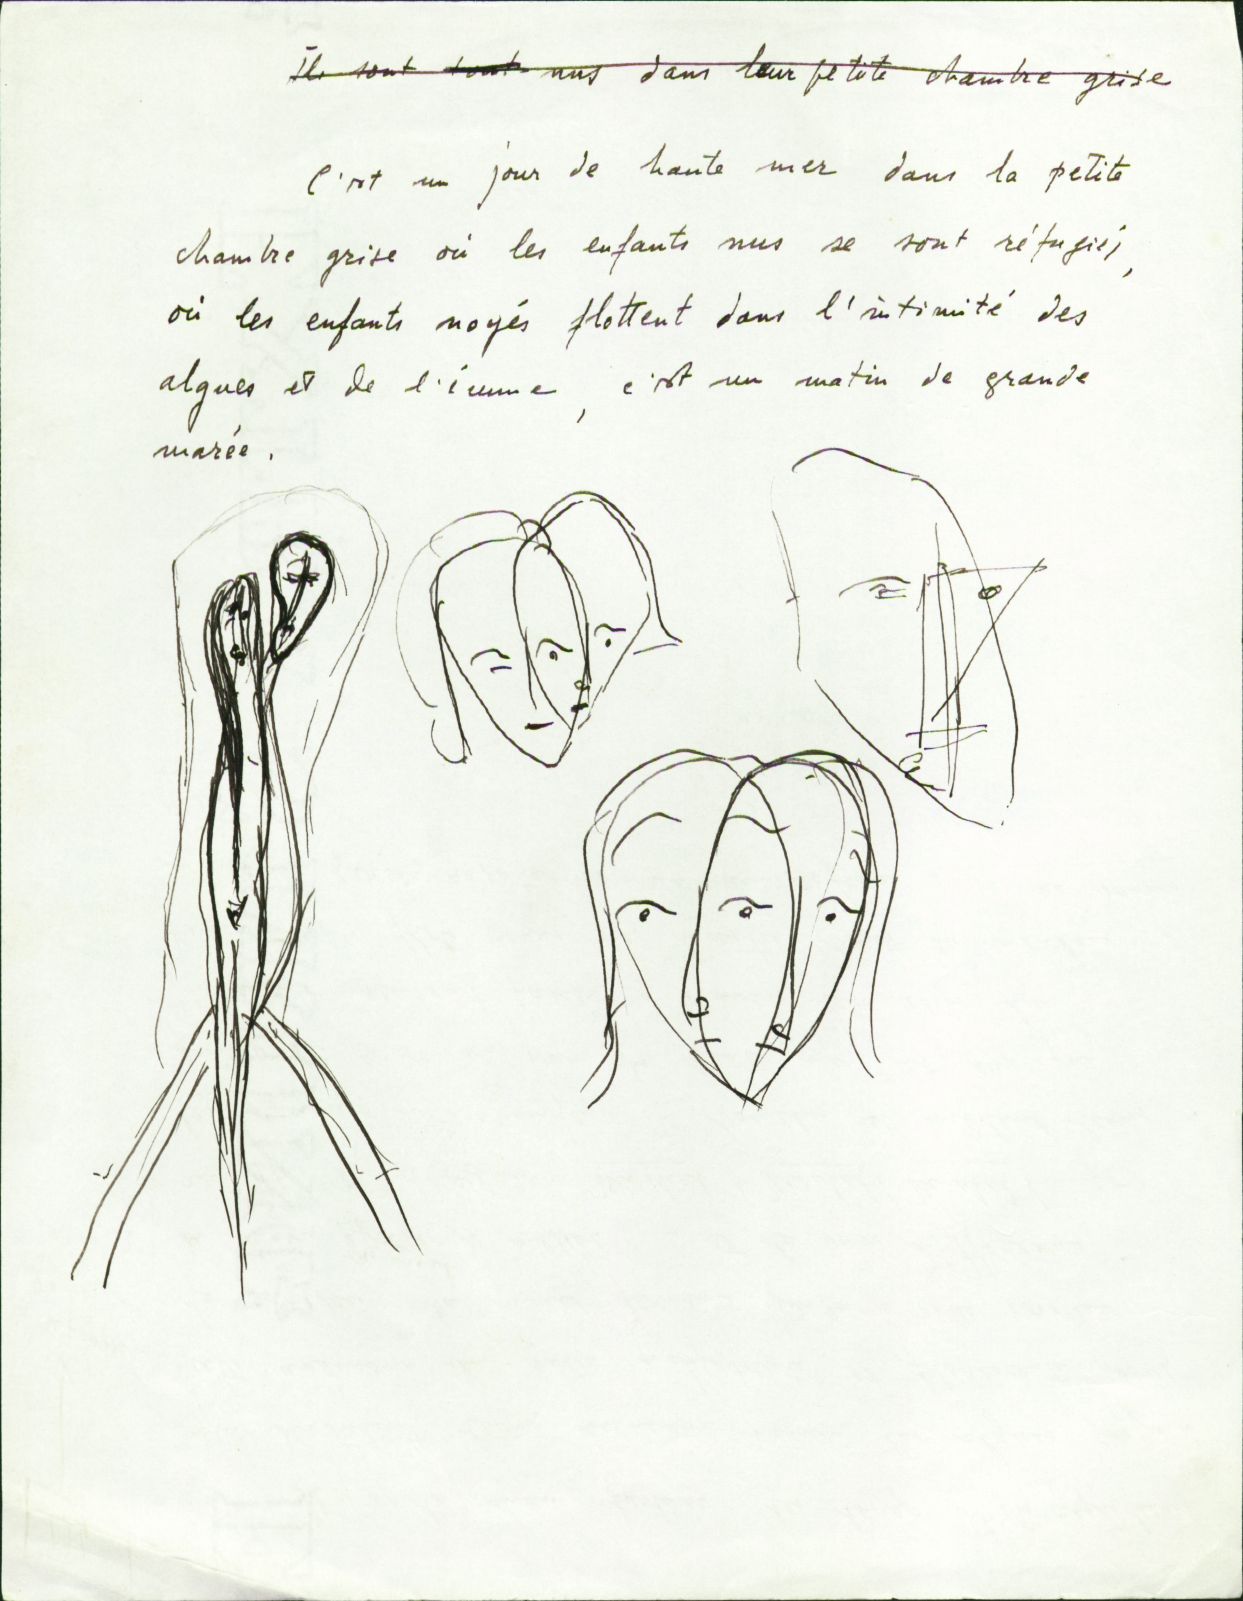 Ils sont tout nus dans leur petite chambre grise
C'est un jour de haute mer dans la petite
chambre grise où les enfants nus se sont réfugiés,
où les enfants noyés flottent dans l'intimité des
algues et de l'écume, c'est un matin de grande
marée.